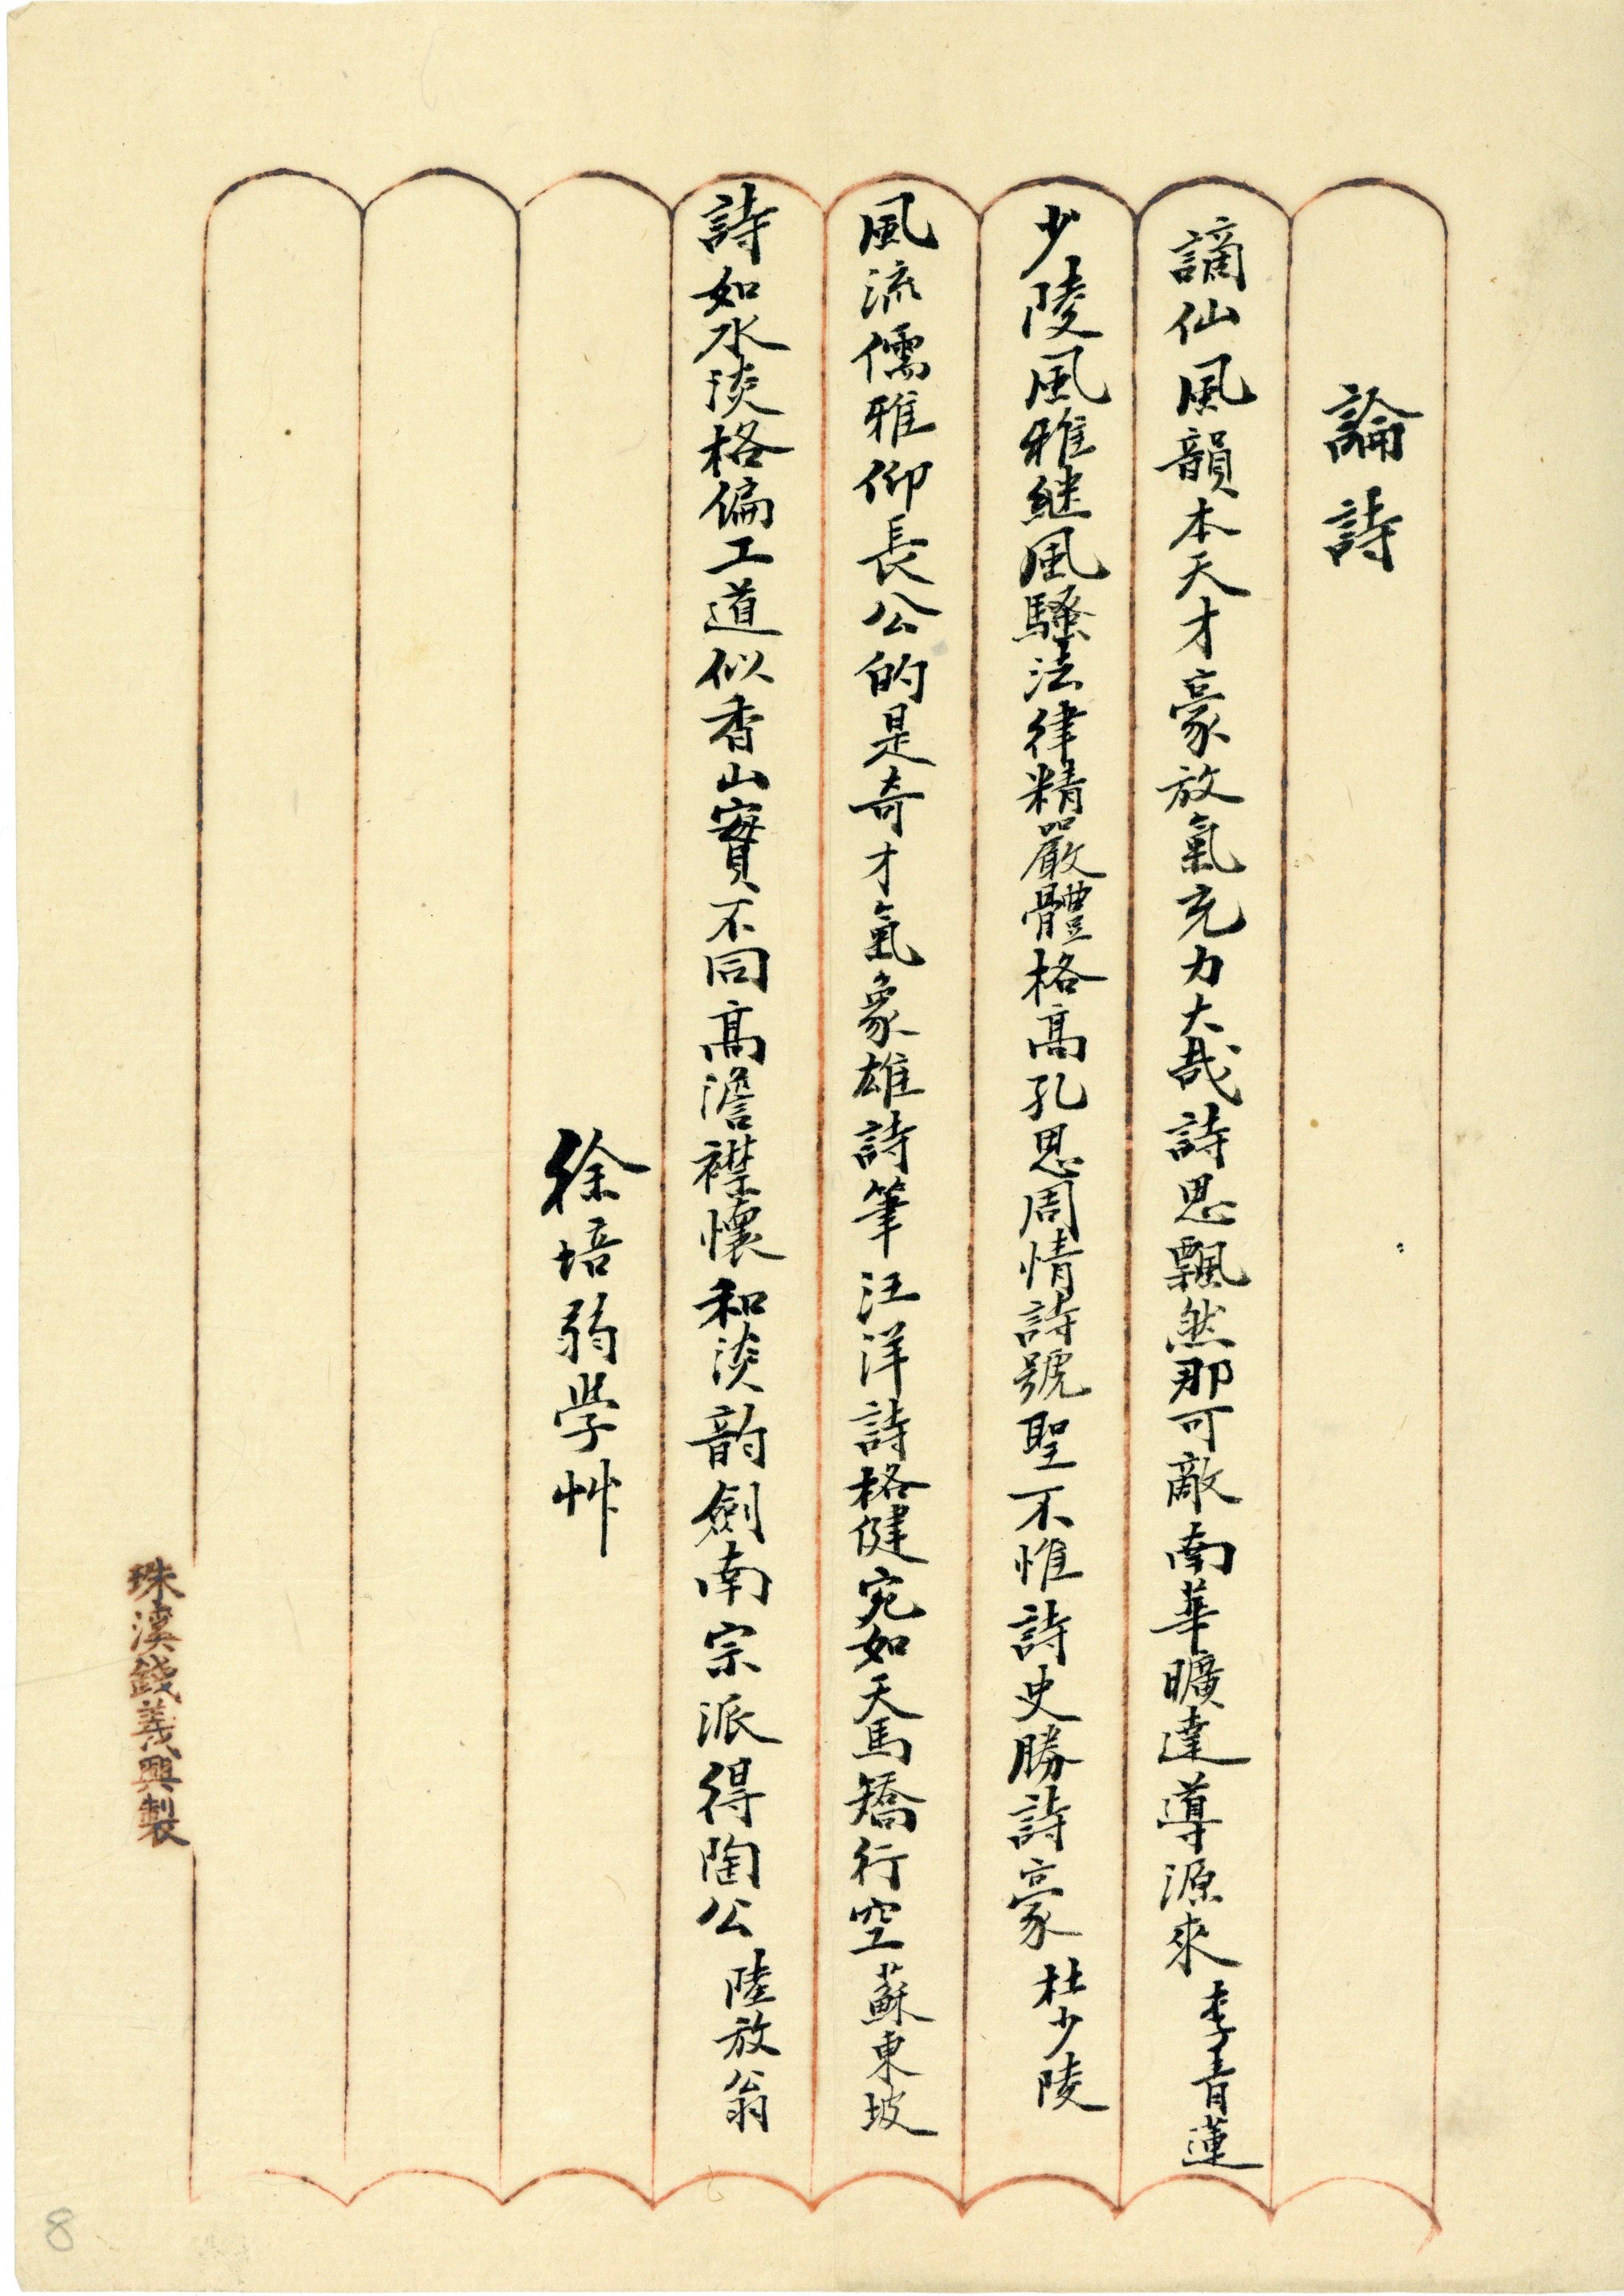 論詩
謫仙風韻本天才豪放氣充力大哉詩思飄然那可敵南華曠達導源來 李青蓮
少陵風雅継風騷法律精嚴體格高孔思周情詩號聖不惟詩史勝詩豪 杜少陵
風流儒雅仰長公的是奇才氣象雄詩筆汪洋詩格健宛如天馬矯行空 蘇東坡
詩如水淡格偏工道似香山實不同高澹襟懷和淡韵劍南宗派得陶公 陸放翁
徐培蒻學艸
珠溪錢義興製
8